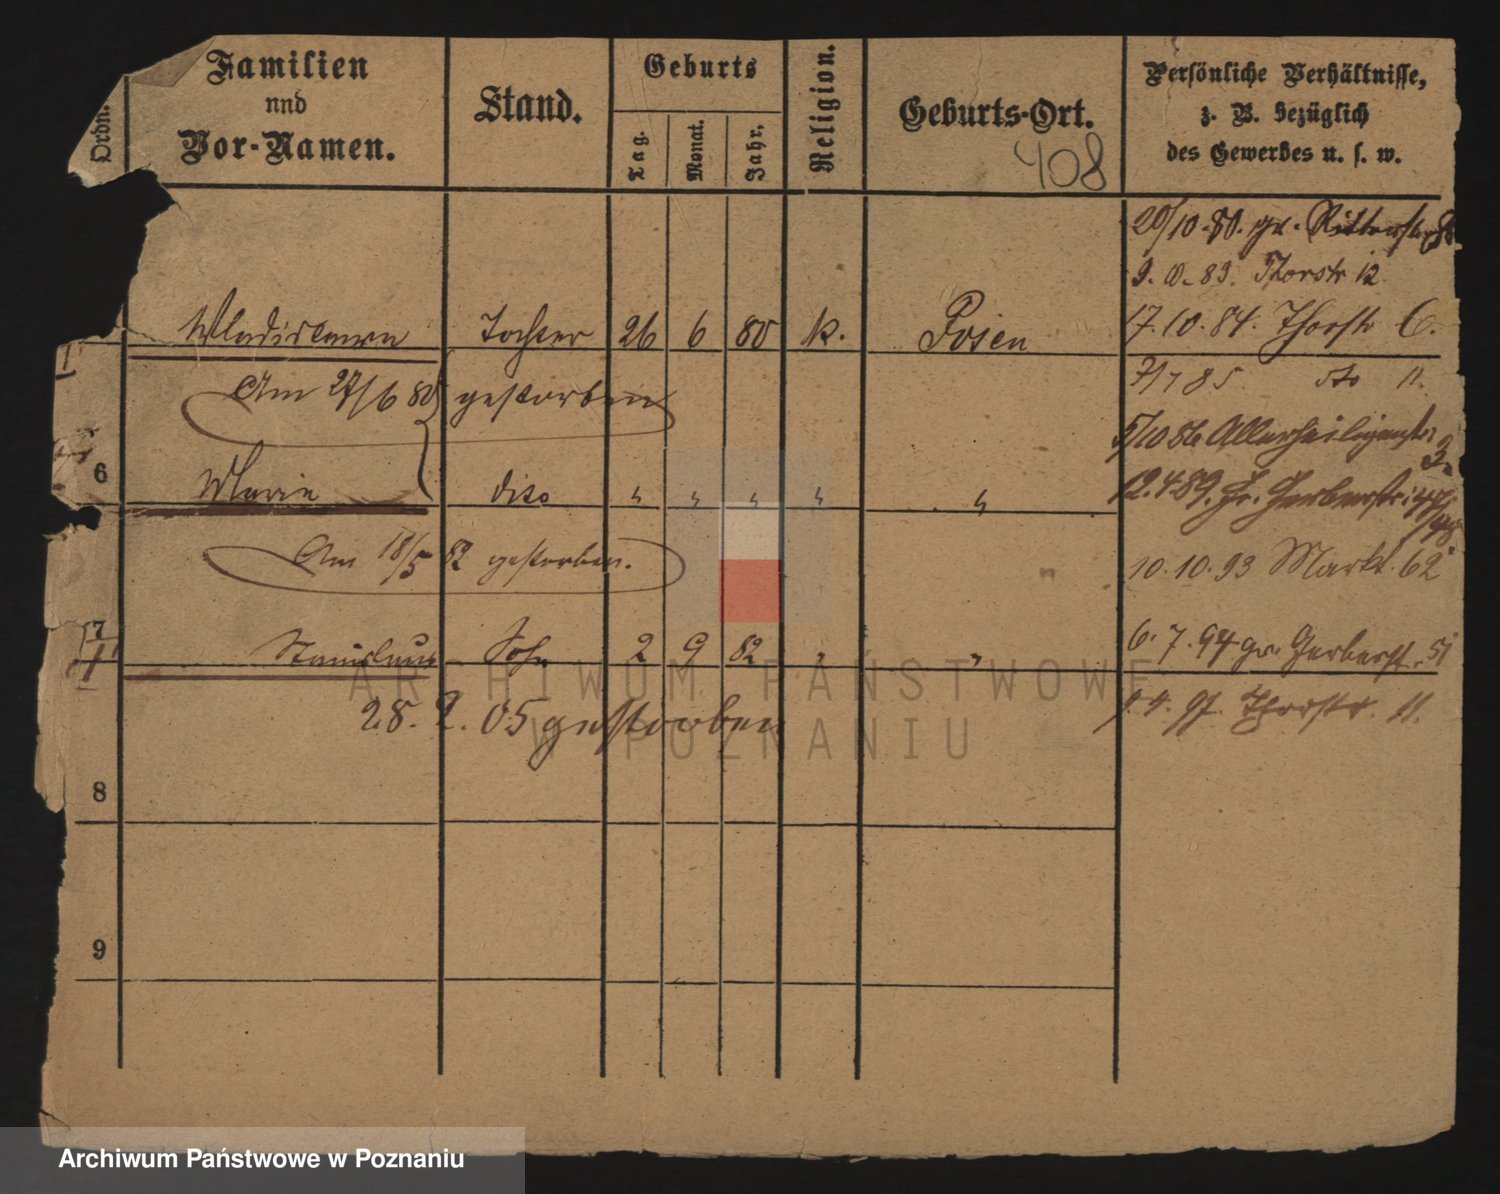 Ordn.
Familien
und
Vor-Namen.
Stand.
Geburts
Tag.
Monat.
Jahr.
Religion.
Geburts-Ort.
408
Persönliche Verhältnisse,
z. B. bezüglich
des Gewerbes u. s. w.
20/10.80. gr. Ritterstr
9. 83. Thorstr 12
Wladislawa Tochter 26 6 80 k. Posen
17.10.84. Thorstr 6.
Am 27/6 80 gestorben
7/7 85 dto 11.
5/10 86 Allerheiligenstr
6 Maria dito " " " " "
12.4.89. Gr. Gerberstr
Am 18/5 82 gestorben.
10.10.93 Markt 62
7 Stanislaus Sohn 2 9 82 " "
6.7.94 gr. Gerberst. 51
28. 2. 05 gestorben
4. 97. Thorstr. 11.
8
9
ARCHIWUM PAŃSTWOWE
W POZNANIU
Archiwum Państwowe w Poznaniu